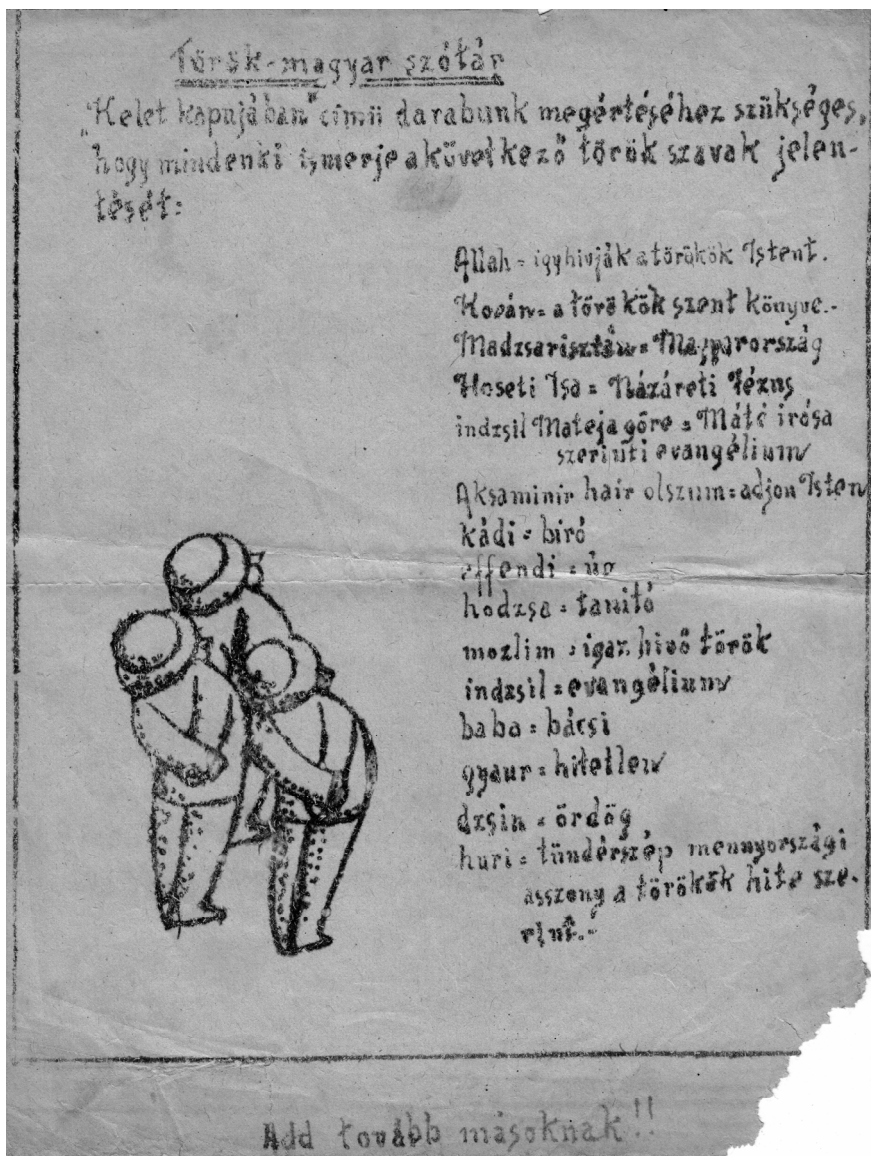 Török-magyar szótár
"Kelet kapujában" című darabunk megértéséhez szükséges,
hogy mindenki ismerje a következő török szavak jelen-
tését:
Allah = igy hivják a törökök Istent.
Korán = a törökök szent könyve.-
Madzsarisztán = Magyarország
Hoseti Isa = Názáreti Jézus
indzsil Mateja göre = Máté irósa
szerinti evangélium
Aksaminir hair olszum = adjon Isten
kádi = biró
effendi = úr
hodzsa = tanitó
mozlim = igaz hivő török
indzsil = evangélium
baba = bácsi
gyaur = hitetlen
dzsin = ördög
huri = tündérszép mennyországi
asszony a törökök hite sze-
rint.-
Add tovább másoknak!!